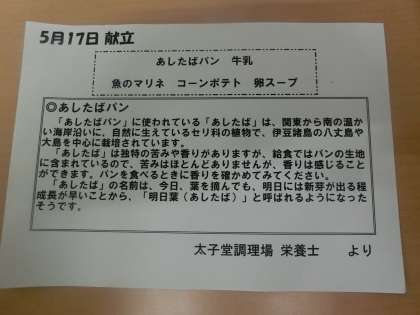 5月17日 献立
あしたばパン 牛乳
魚のマリネ コーンポテト 卵スープ
◎あしたばパン
「あしたばパン」に使われている「あしたば」は、関東から南の温か
い海岸沿いに、自然に生えているセリ科の植物で、伊豆諸島の八丈島や
大島を中心に栽培されています。
「あしたば」は独特の苦みや香りがありますが、給食ではパンの生地
に含まれているので、苦みはほとんどありませんが、香りは感じること
ができます。パンを食べるときに香りを確かめてみてください。
「あしたば」の名前は、今日、葉を摘んでも、明日には新芽が出る程
成長が早いことから、「明日葉（あしたば）」と呼ばれるようになった
そうです。
太子堂調理場 栄養士 より